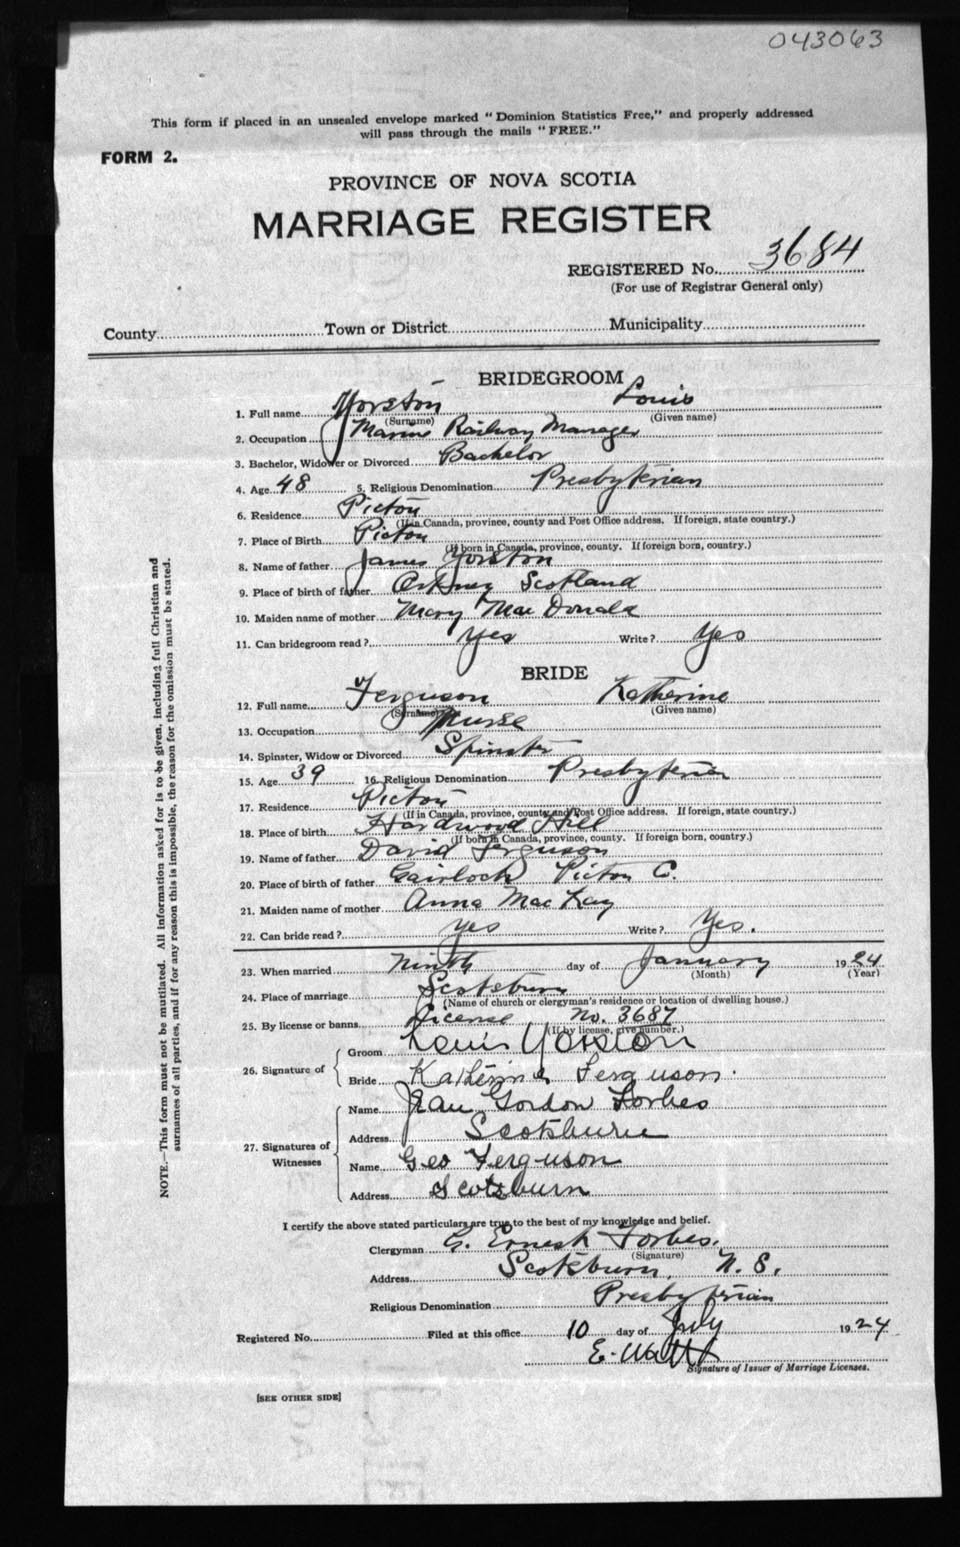 043063
This form if placed in an unsealed envelope marked "Dominion Statistics Free," and properly addressed
will pass through the mails "FREE."
FORM 2.
PROVINCE OF NOVA SCOTIA
MARRIAGE REGISTER
REGISTERED No. 3684
(For use of Registrar General only)
County Town or District Municipality
BRIDEGROOM
1. Full name Yorston Louis
(Surname) (Given name)
2. Occupation Marine Railway Manager
3. Bachelor, Widower or Divorced Bachelor
4. Age 48 5. Religious Denomination Presbyterian
6. Residence Pictou
(If in Canada, province, county and Post Office address. If foreign, state country.)
7. Place of Birth Pictou
(If born in Canada, province, county. If foreign born, country.)
8. Name of father James Yorston
9. Place of birth of father Orkney Scotland
10. Maiden name of mother Mary MacDonald
11. Can bridegroom read? Yes Write? Yes
BRIDE
12. Full name Ferguson Katherine
(Surname) (Given name)
13. Occupation Nurse
14. Spinster, Widow or Divorced Spinster
15. Age 39 16. Religious Denomination Presbyterian
17. Residence Pictou
(If in Canada, province, county and Post Office address. If foreign, state country.)
18. Place of birth Hardwood Hill
(If born in Canada, province, county. If foreign born, country.)
19. Name of father David Ferguson
20. Place of birth of father Gairloch Pictou C.
21. Maiden name of mother Anna MacKay
22. Can bride read? Yes Write? Yes.
23. When married Ninth day of January 1924
(Month) (Year)
24. Place of marriage Scotsburn
(Name of church or clergyman's residence or location of dwelling house.)
25. By license or banns License No. 3687
(If by license, give number.)
26. Signature of Groom Louis Yorston
Bride Katherine Ferguson.
27. Signatures of Witnesses Name Jean Gordon Forbes
Address Scotsburn
Name Geo Ferguson
Address Scotsburn
I certify the above stated particulars are true to the best of my knowledge and belief.
Clergyman G. Ernest Forbes.
(Signature)
Address Scotsburn, N. S.
Religious Denomination Presbyterian
Registered No. Filed at this office 10 day of July 1924
E. Watt
Signature of Issuer of Marriage Licenses.
[SEE OTHER SIDE]
NOTE.—This form must not be mutilated. All information asked for is to be given, including full Christian and
surnames of all parties, and if for any reason this is impossible, the reason for the omission must be stated.